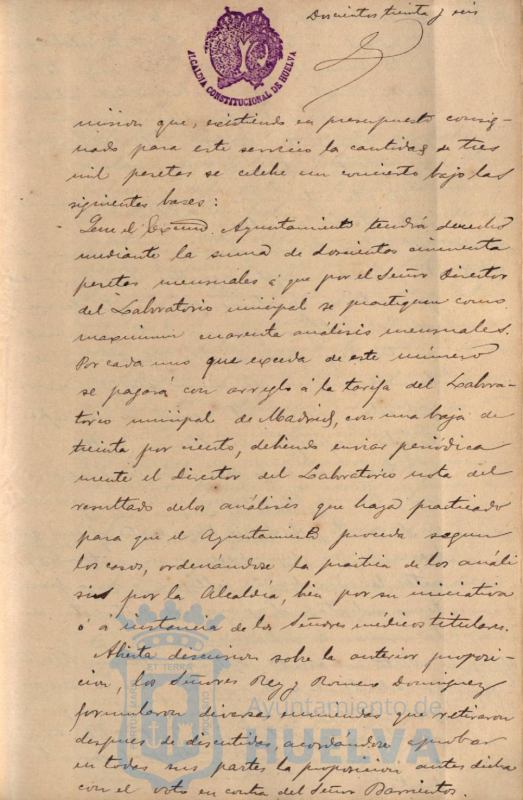 Doscientos treinta y seis
ALCALDIA CONSTITUCIONAL DE HUELVA
mision que, existiendo en presupuesto consig-
nado para este servicio la cantidad de tres
mil pesetas se celebre un concierto bajo las
siguientes bases:
Que el Excmo. Ayuntamiento tendrá derecho
mediante la suma de doscientas cincuenta
pesetas mensuales á que por el Señor Director
del Laboratorio municipal se practiquen como
maximum cuarenta análisis mensuales.
Por cada uno que exceda de este número
se pagará con arreglo á la tarifa del Labora-
torio municipal de Madrid, con una baja de
treinta por ciento, debiendo enviar periódica
mente el Director del Laboratorio nota del
resultado de los análisis que haya practicado
para que el Ayuntamiento proceda segun
los casos, ordenándose la práctica de los análi
sis por la Alcaldía, bien por su iniciativa
ó á instancia de los Señores médicos titulares.
Abierta discusion sobre la anterior proposi-
cion, los Señores Rey y Romero Dominguez
formularon diversas enmiendas que retiraron
despues de discutidas, acordándose aprobar
en todas sus partes la proposicion antes dicha
con el voto en contra del Señor Barrientos.
ET TERRE
Ayuntamiento de
HUELVA